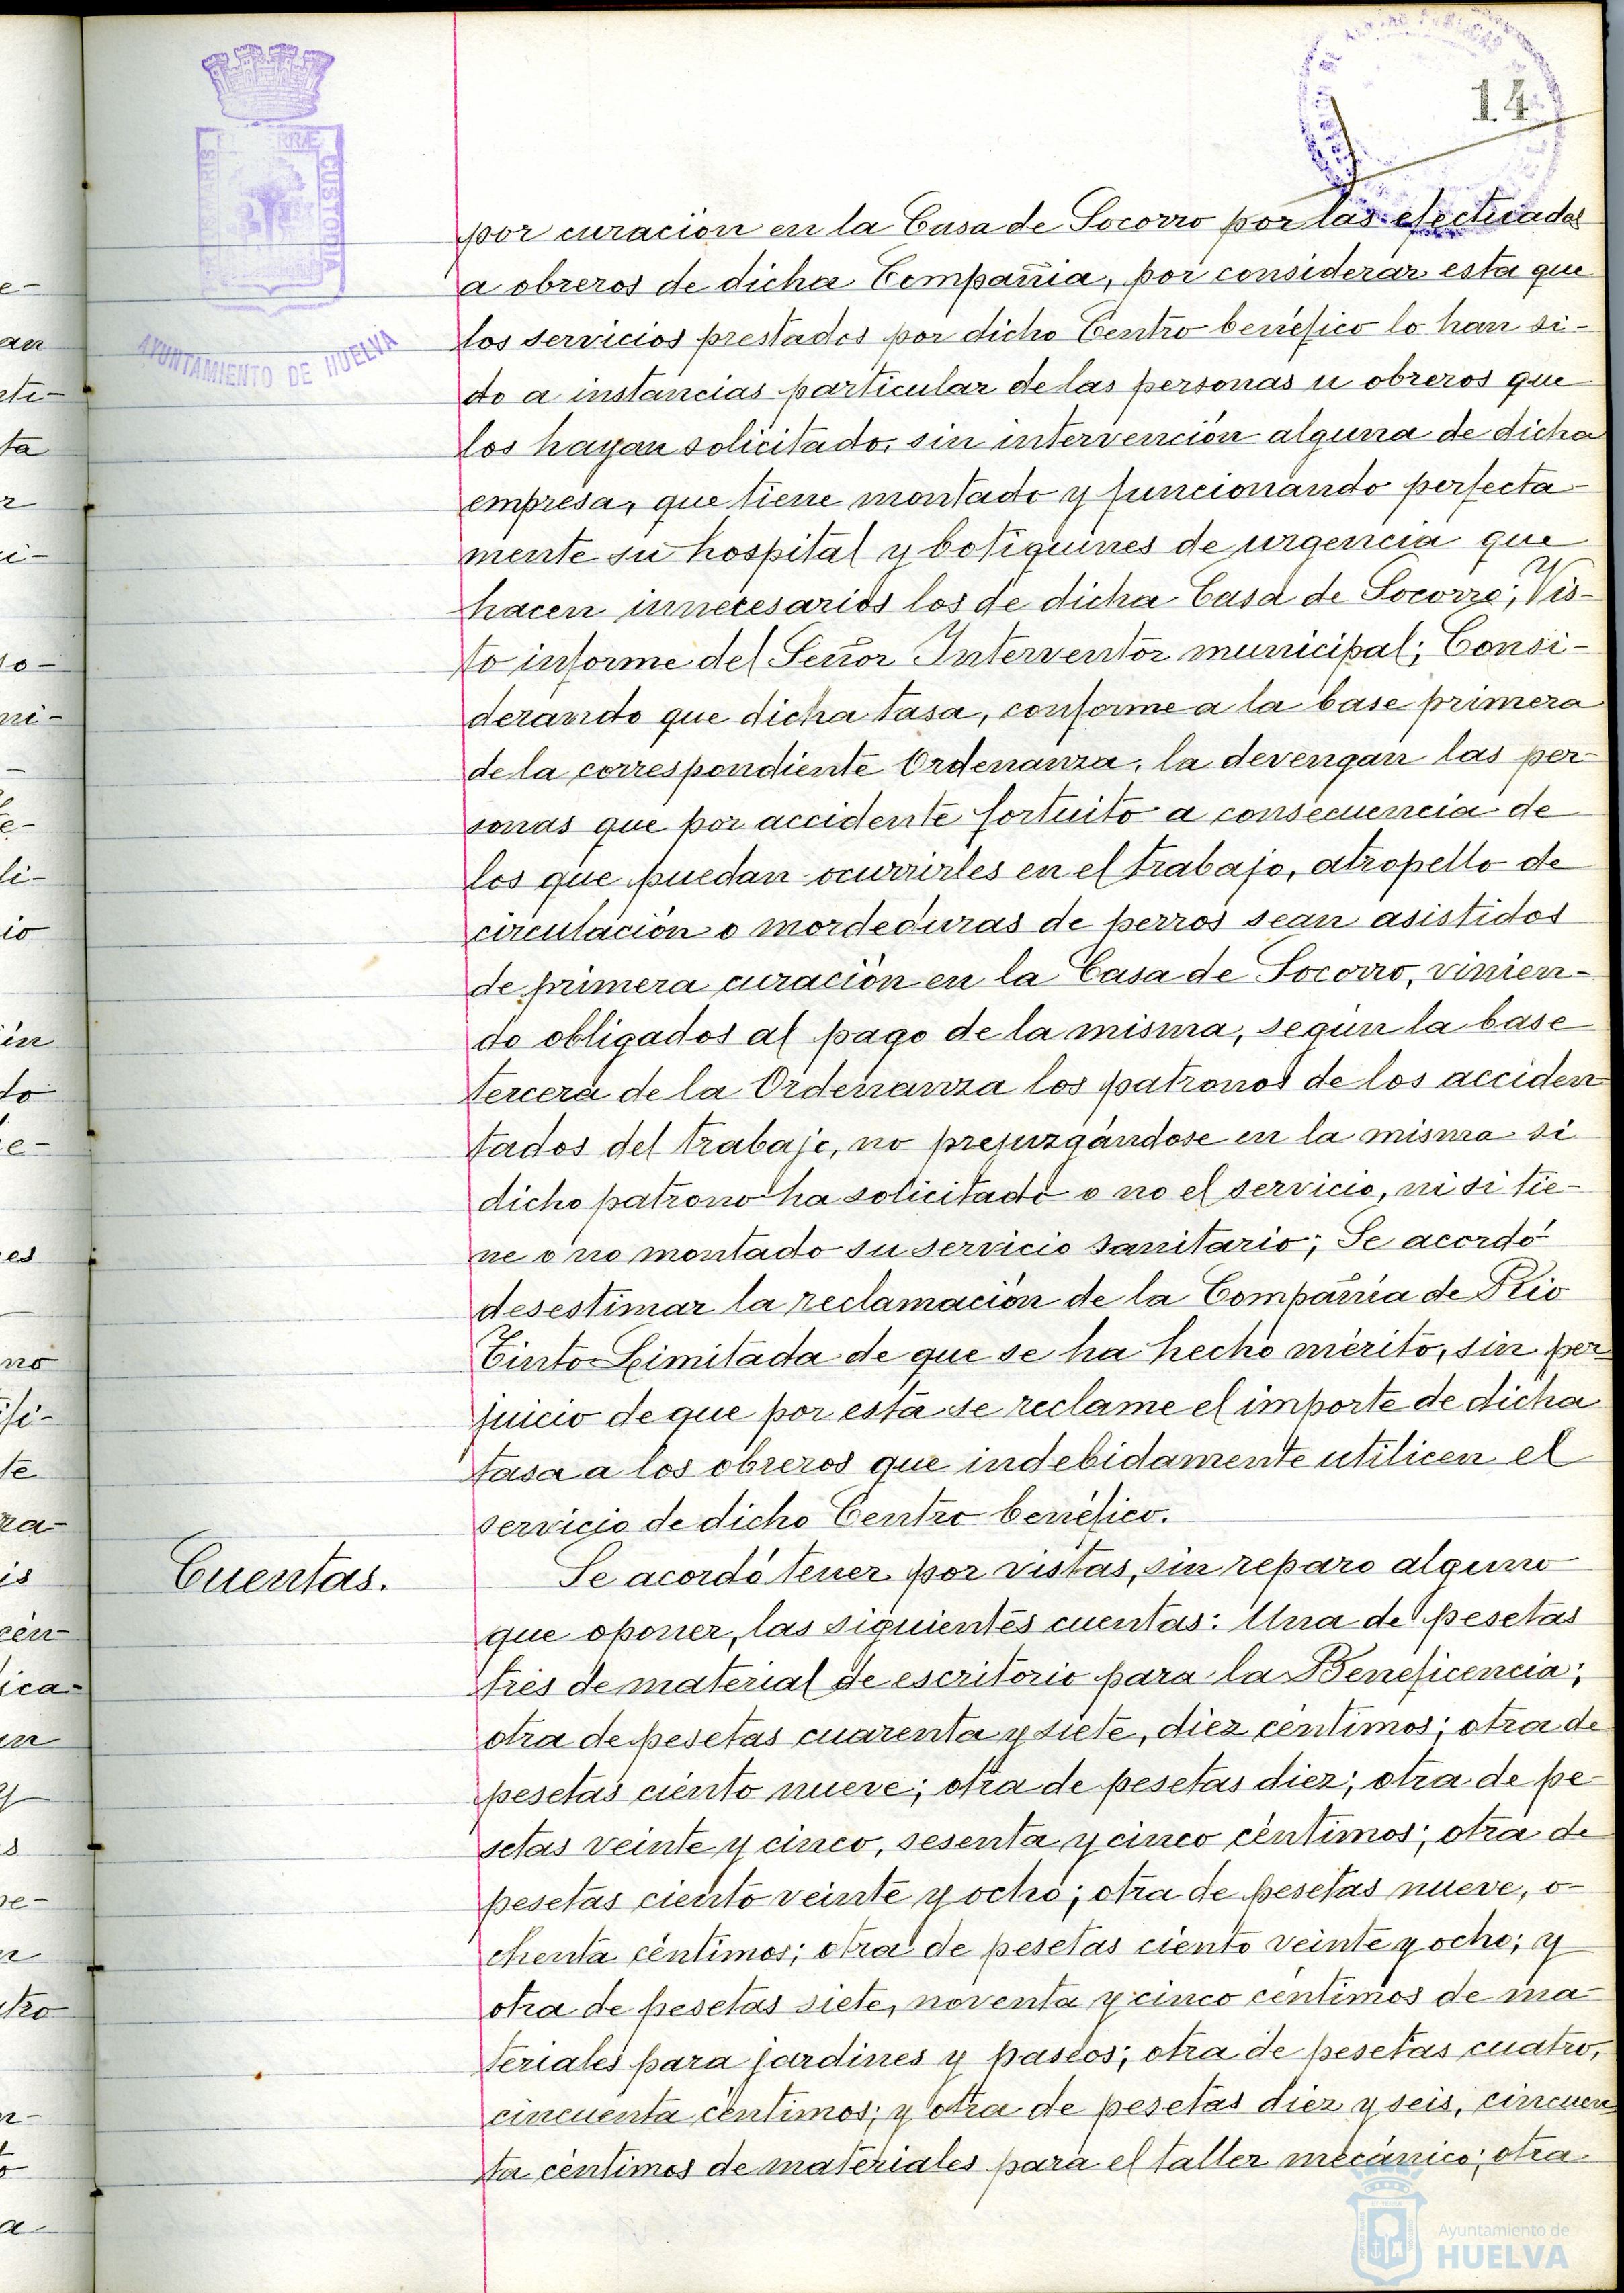 14
PORTUS
TERRAE
CUSTODIA
AYUNTAMIENTO DE HUELVA
por curación en la Casa de Socorro por las efectuadas
a obreros de dicha Compañia, por considerar esta que
los servicios prestados por dicho Centro benéfico lo han si-
do a instancias particular de las personas u obreros que
los hayan solicitado, sin intervención alguna de dicha
empresa, que tiene montado y funcionando perfecta-
mente su hospital y botiquines de urgencia que
hacen innecesarios los de dicha Casa de Socorro; Vis-
to informe del Señor Interventor municipal; Consi-
derando que dicha tasa, conforme a la base primera
de la correspondiente Ordenanza, la devengan las per-
sonas que por accidente fortuito a consecuencia de
los que puedan ocurrirles en el trabajo, atropello de
circulación o mordeduras de perros sean asistidos
de primera curación en la Casa de Socorro, vinien-
do obligados al pago de la misma, según la base
tercera de la Ordenanza los patronos de los acciden
tados del trabajo, no prejuzgándose en la misma si
dicho patrono ha solicitado o no el servicio, ni si tie-
ne o no montado su servicio sanitario; Se acordó
desestimar la reclamación de la Compañia de Rio
Tinto Limitada de que se ha hecho mérito, sin per
juicio de que por esta se reclame el importe de dicha
tasa a los obreros que indebidamente utilicen el
servicio de dicho Centro benéfico.
Cuentas.
Se acordó tener por vistas, sin reparo alguno
que oponer, las siguientes cuentas: Una de pesetas
tres de material de escritorio para la Beneficencia;
otra de pesetas cuarenta y siete, diez céntimos; otra de
pesetas ciento nueve; otra de pesetas diez; otra de pe-
setas veinte y cinco, sesenta y cinco céntimos; otra de
pesetas ciento veinte y ocho; otra de pesetas nueve, o-
chenta céntimos; otra de pesetas ciento veinte y ocho; y
otra de pesetas siete, noventa y cinco céntimos de ma-
teriales para jardines y paseos; otra de pesetas cuatro,
cincuenta céntimos; y otra de pesetas diez y seis, cincuen
ta céntimos de materiales para el taller mecánico; otra
Ayuntamiento de
HUELVA